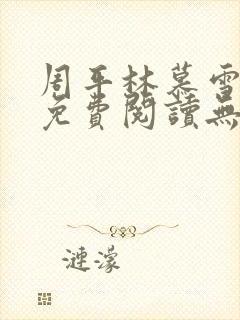 周平林慕雪
免費閱讀無
漣濛